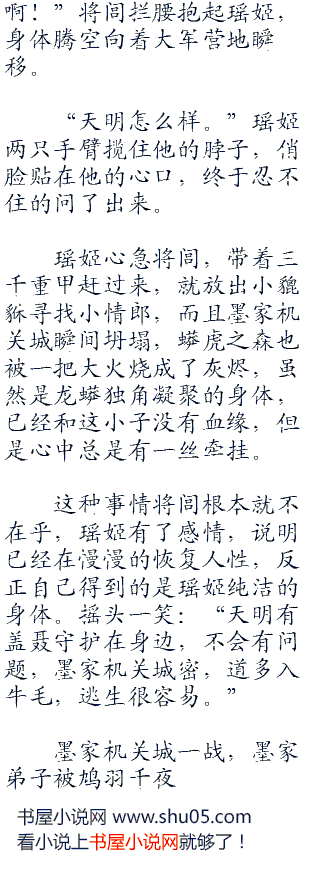 啊！”将闾拦腰抱起瑶姬，
身体腾空向着大军营地瞬
移。
“天明怎么样。”瑶姬
两只手臂揽住他的脖子，俏
脸贴在他的心口，终于忍不
住的问了出来。
瑶姬心急将闾，带着三
千重甲赶过来，就放出小貔
貅寻找小情郎，而且墨家机
关城瞬间坍塌，蟒虎之森也
被一把大火烧成了灰烬，虽
然是龙蟒独角凝聚的身体，
已经和这小子没有血缘，但
是心中总是有一丝牵挂。
这种事情将闾根本就不
在乎，瑶姬有了感情，说明
已经在慢慢的恢复人性，反
正自己得到的是瑶姬纯洁的
身体。摇头一笑：“天明有
盖聂守护在身边，不会有问
题，墨家机关城密，道多入
牛毛，逃生很容易。”
墨家机关城一战，墨家
弟子被鸠羽千夜
书屋小说网 www.shu05.com
看小说上书屋小说网就够了！